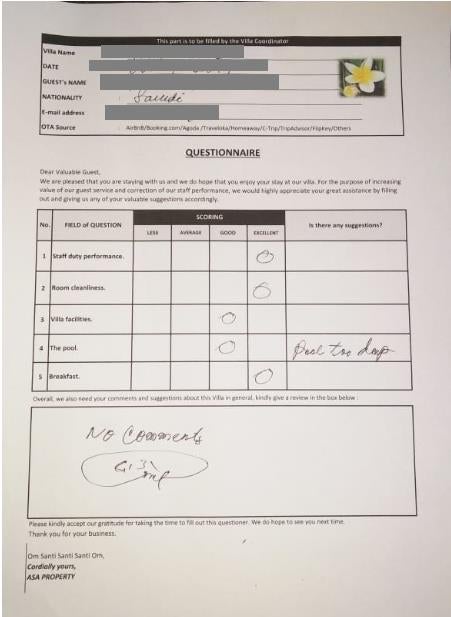 This part is to be filled by the Villa Coordinator
Villa Name
DATE
GUEST's NAME
NATIONALITY : Saudi
E-mail address
OTA Source : AirBnB/Booking.com/Agoda/Traveloka/Homeaway/C-Trip/TripAdvisor/FlipKey/Others
QUESTIONNAIRE
Dear Valuable Guest,
We are pleased that you are staying with us and we do hope that you enjoy your stay at our villa. For the purpose of increasing
value of our guest service and correction of our staff performance, we would highly appreciate your great assistance by filling
out and giving us any of your valuable suggestions accordingly.
No. FIELD of QUESTION SCORING Is there any suggestions?
LESS AVERAGE GOOD EXCELLENT
1 Staff duty performance.
2 Room cleanliness.
3 Villa facilities.
4 The pool. Pool too deep
5 Breakfast.
Overall, we also need your comments and suggestions about this Villa in general, kindly give a review in the box below :
No Comments
Please kindly accept our gratitude for taking the time to fill out this questioner. We do hope to see you next time.
Thank you for your business.
Om Santi Santi Santi Om,
Cordially yours,
ASA PROPERTY